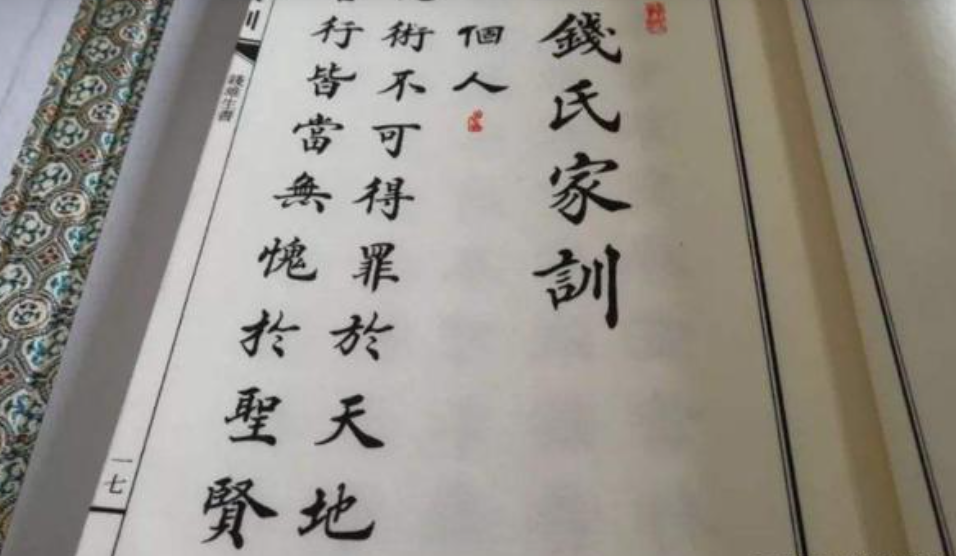 錢氏家訓
個人
術不可得罪於天地
行皆當無愧於聖賢
一七